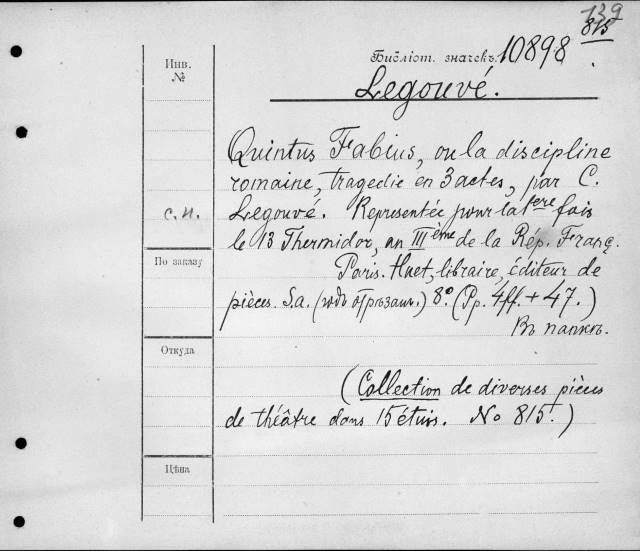 739
815
Инв. №
Библіот. значекъ 10898
Legouvé.
Quintus Fabius, ou la discipline
romaine, tragedie en 3 actes, par C.
с.н.
Legouvé. Representée pour la 1ère fois
le 13 Thermidor, an IIIème de la Rép. Franç.
По заказу
Paris. Huet, libraire, éditeur de
pièces. S.a. (годъ отрѣзанъ.) 8º. (Pp. 4ff. + 47.)
Въ папкѣ.
Откуда
(Collection de diverses pièces
de théâtre dans 15 étuis. No 815.)
Цѣна